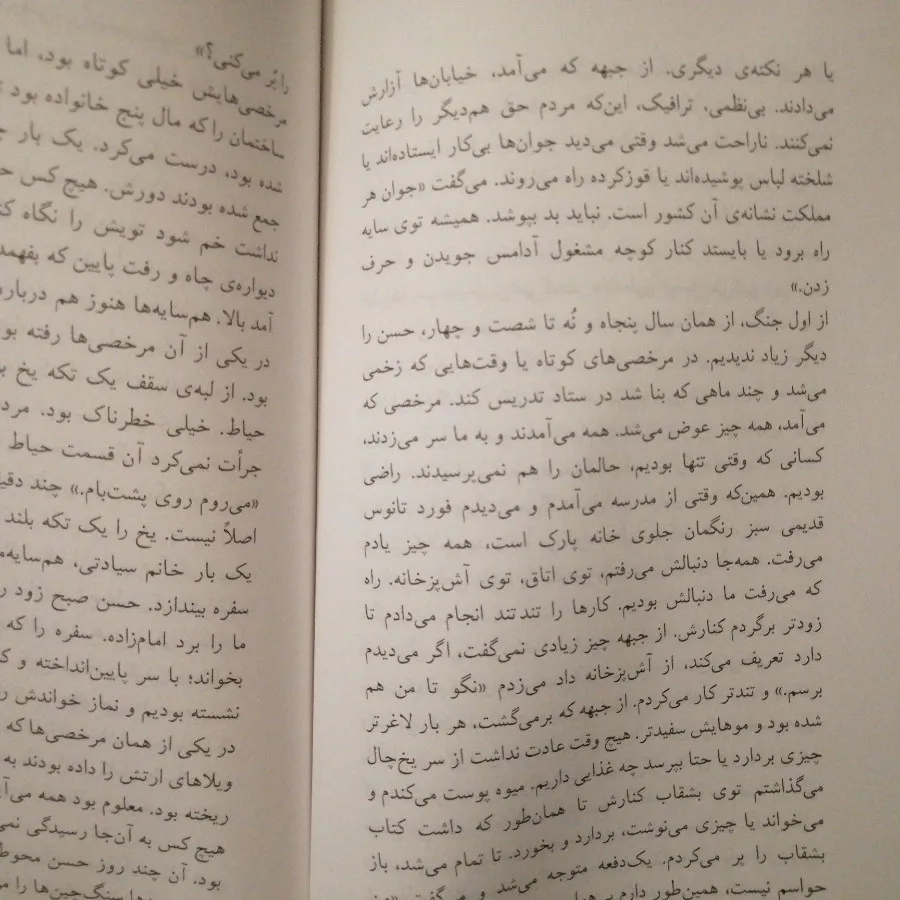 یا هر نکته‌ی دیگری. از جبهه که می‌آمد، خیابان‌ها آزارش
می‌دادند. بی‌نظمی، ترافیک، این‌که مردم حق هم‌دیگر را رعایت
نمی‌کنند. ناراحت می‌شد وقتی می‌دید جوان‌ها بی‌کار ایستاده‌اند یا
شلخته لباس پوشیده‌اند یا قوزکرده راه می‌روند. می‌گفت «جوان هر
مملکت نشانه‌ی آن کشور است. نباید بد بپوشد. همیشه توی سایه
راه برود یا بایستد کنار کوچه مشغول آدامس جویدن و حرف
زدن.»
از اول جنگ، از همان سال پنجاه و نُه تا شصت و چهار، حسن را
دیگر زیاد ندیدیم. در مرخصی‌های کوتاه یا وقت‌هایی که زخمی
می‌شد و چند ماهی که بنا شد در ستاد تدریس کند. مرخصی که
می‌آمد، همه چیز عوض می‌شد. همه می‌آمدند و به ما سر می‌زدند،
کسانی که وقتی تنها بودیم، حالمان را هم نمی‌پرسیدند. راضی
بودیم. همین‌که وقتی از مدرسه می‌آمدم و می‌دیدم فورد تانوس
قدیمی سبز رنگمان جلوی خانه پارک است، همه چیز یادم
می‌رفت. همه‌جا دنبالش می‌رفتم، توی اتاق، توی آش‌پزخانه. راه
که می‌رفت ما دنبالش بودیم. کارها را تندتند انجام می‌دادم تا
زودتر برگردم کنارش. از جبهه چیز زیادی نمی‌گفت، اگر می‌دیدم
دارد تعریف می‌کند، از آش‌پزخانه داد می‌زدم «نگو تا من هم
برسم.» و تندتر کار می‌کردم. از جبهه که برمی‌گشت، هر بار لاغرتر
شده بود و موهایش سفیدتر. هیچ وقت عادت نداشت از سر یخ‌چال
چیزی بردارد یا حتا بپرسد چه غذایی داریم. میوه پوست می‌کندم و
می‌گذاشتم توی بشقاب کنارش تا همان‌طور که داشت کتاب
می‌خواند یا چیزی می‌نوشت، بردارد و بخورد. تا تمام می‌شد، باز
بشقاب را پر می‌کردم. یک‌دفعه متوجه می‌شد و می‌گفت
حواسم نیست، همین‌طور دارم
را بُر می‌کنی؟»
مرخصی‌هایش خیلی کوتاه بود، اما
ساختمان را که مال پنج خانواده بود
شده بود، درست می‌کرد. یک بار
جمع شده بودند دورش. هیچ کس
نداشت خم شود تویش را نگاه
دیواره‌ی چاه و رفت پایین که بفهمد
آمد بالا. هم‌سایه‌ها هنوز هم
در یکی از آن مرخصی‌ها رفته
بود. از لبه‌ی سقف یک تکه یخ
حیاط. خیلی خطرناک بود.
جرأت نمی‌کرد آن قسمت حیاط
«می‌روم روی پشت‌بام.» چند
اصلاً نیست. یخ را یک تکه بلند
یک بار خانم سیادتی،
سفره بیندازد. حسن صبح زود
ما را برد امام‌زاده. سفره را که
بخواند؛ با سر پایین‌انداخته و
نشسته بودیم و نماز خواندش
در یکی از همان مرخصی‌ها که
ویلاهای ارتش را داده بودند به
ریخته بود. معلوم بود همه
هیچ کس به آن‌جا رسیدگی
بود. آن چند روز حسن
سنگ‌چین‌ها را